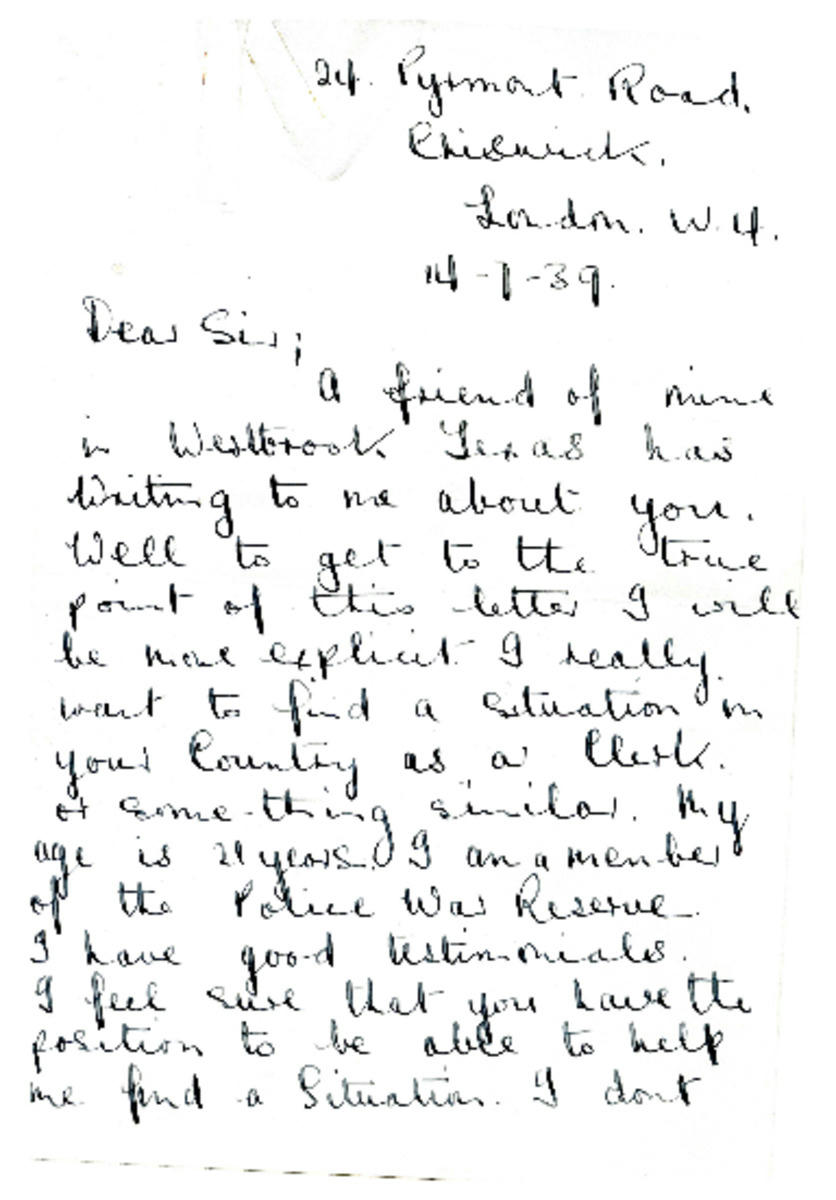 24. Pyrmont Road.
Chiswick.
London. W.4.
14-7-39.
Dear Sir;
A friend of mine
in Westbrook Texas has
Writing to me about you.
Well to get to the true
point of this letter I will
be more explicit I really
want to find a situation in
your Country as a Clerk.
or some-thing similar. My
age is 21 years. I am a member
of the Police War Reserve.
I have good testimonials.
I feel sure that you have the
position to be able to help
me find a Situation. I dont